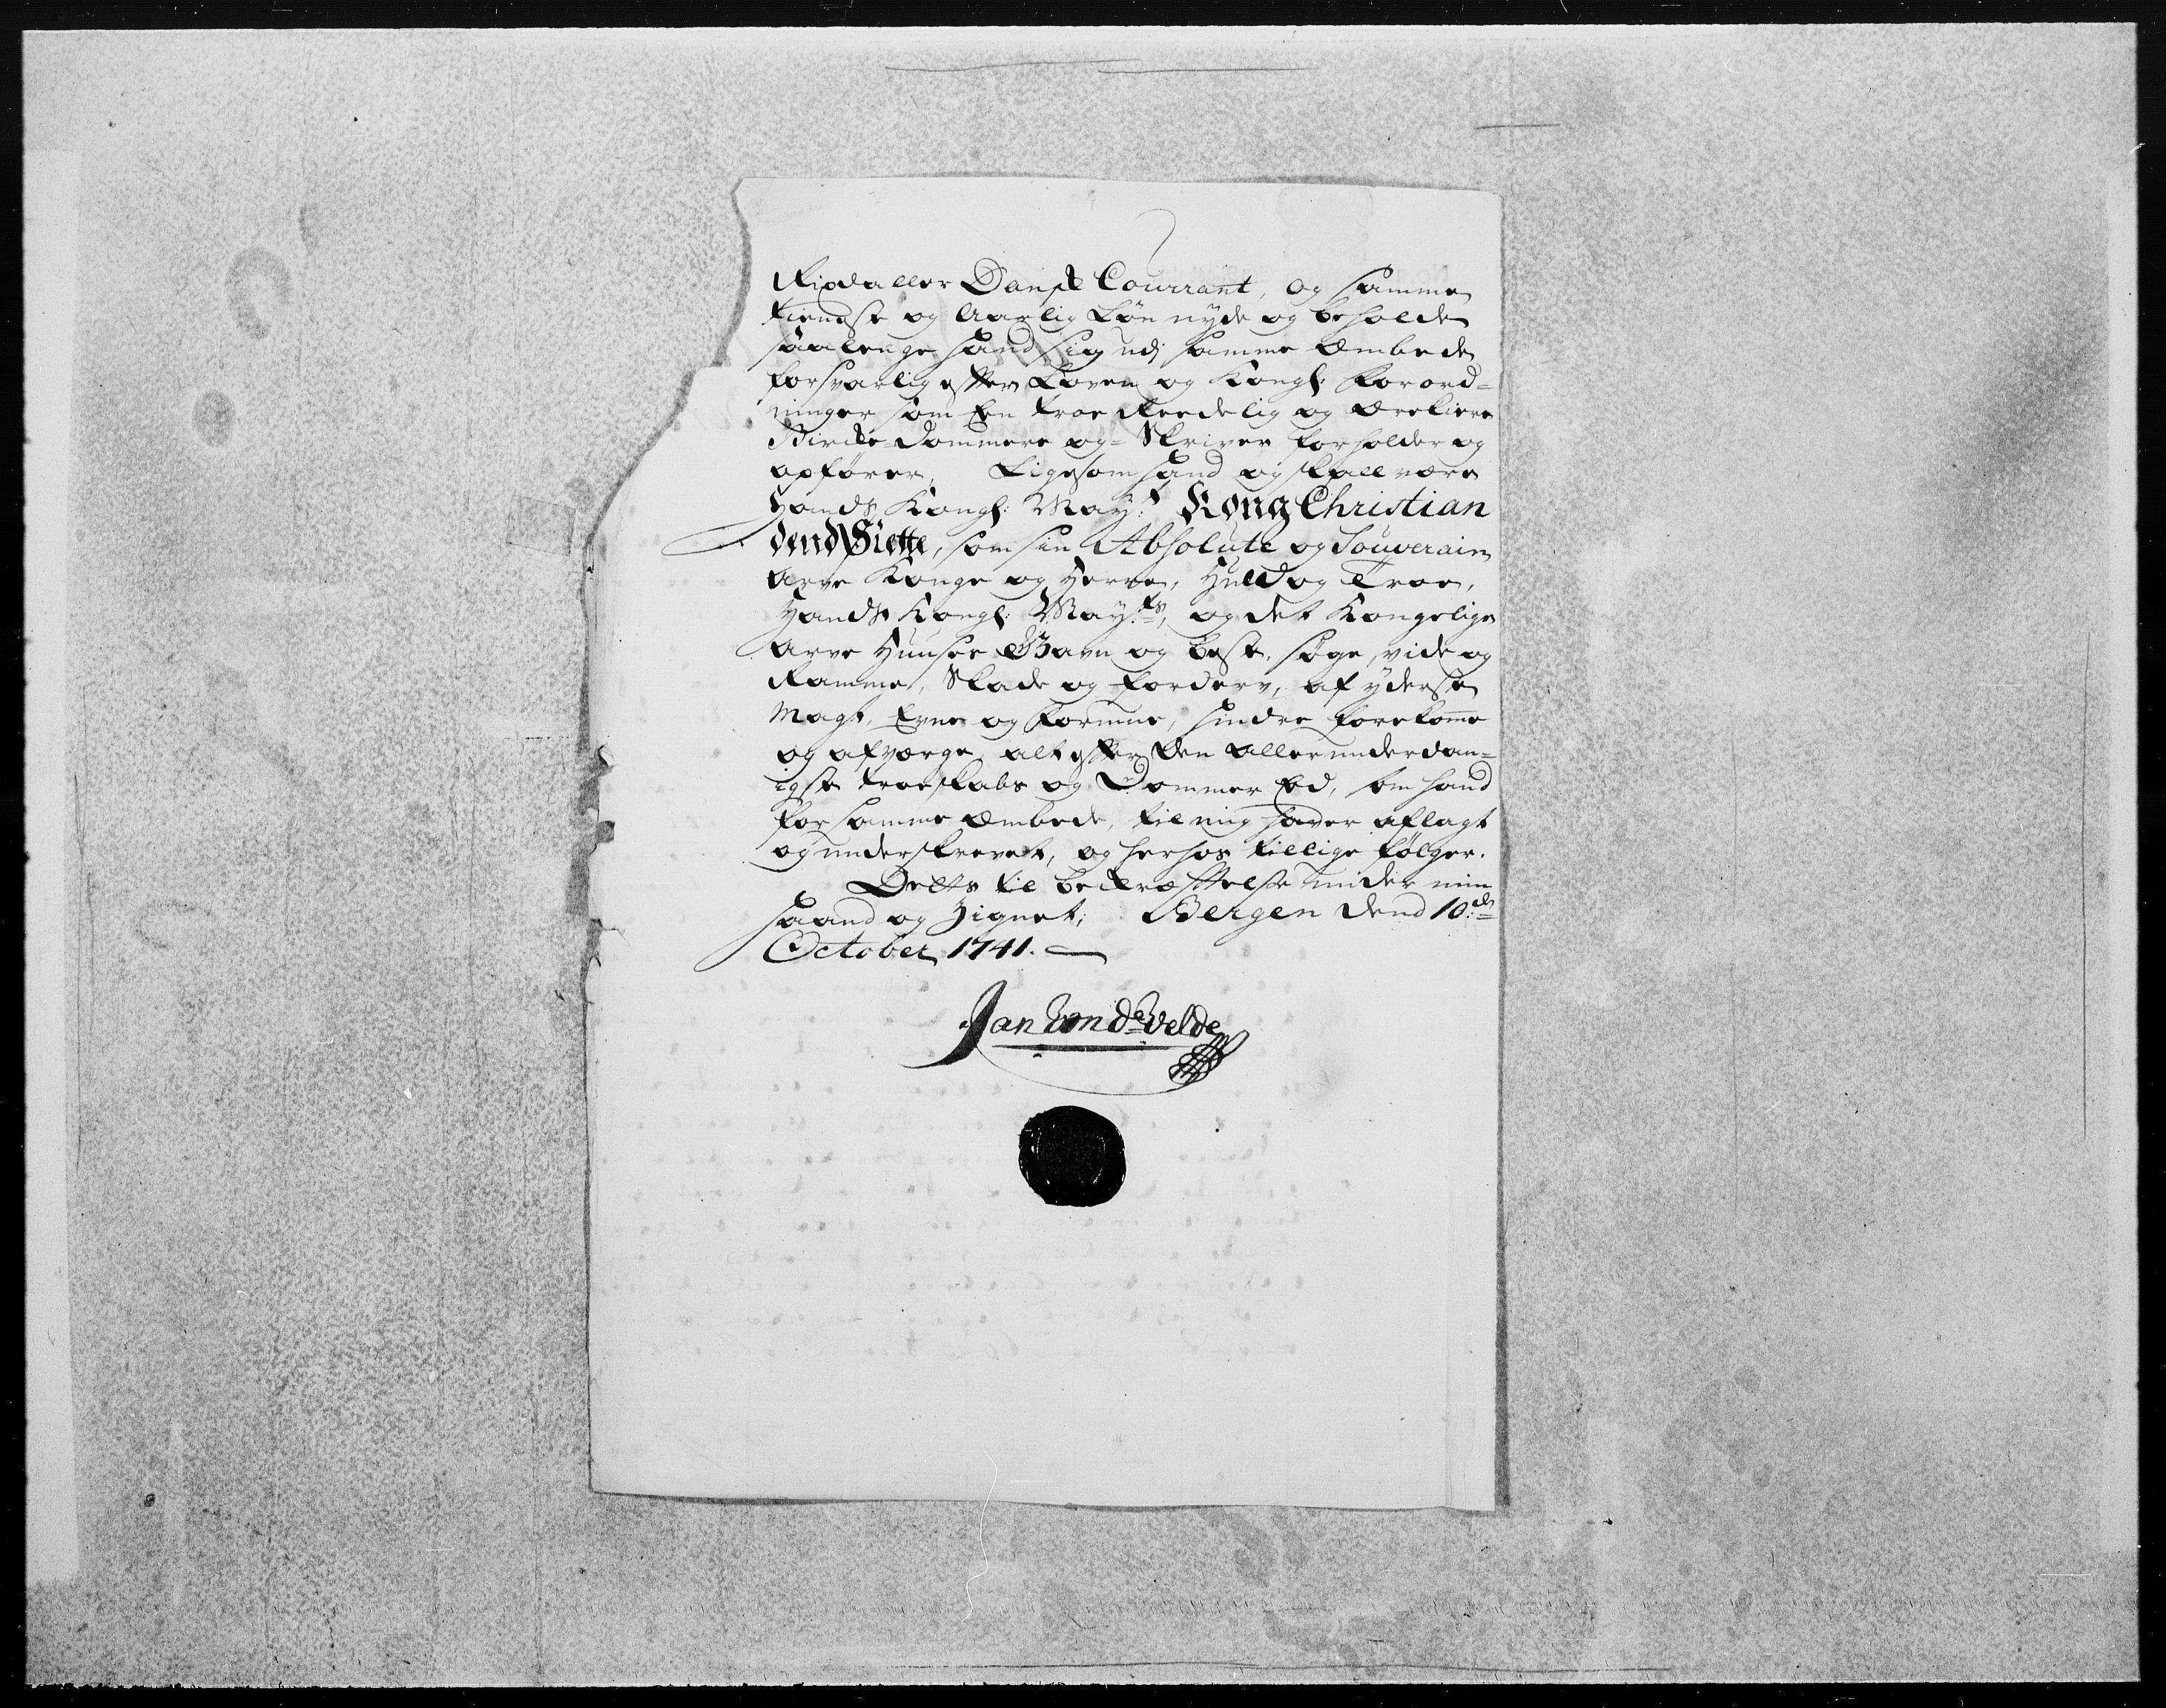 Rixdaller Danske Courrant, og samme
tieneste og Aarlig Løn nyde og beholde
saalenge hand sig udj samme Embede
forsvarlig efter Loven og Kongl: Forord=
ninger som Een troe Reedelig og ærekiere
Bircke-Dommere og= Skriver forholder og
opfører, Ligesom hand og skall være
Hands Kongl: May:t Kong Christian
dend Siette, som sin Absolute og Souverain
Arve Konge og Herre, Huld og Troe,
Hands Kongl: May:ts, og det Kongelige
Arve Huuses Gavn og beste, søge, vide og
Ramme, Skade og Forderv, af yderste
Magt, Evne og Formue, hindre forekomme
og afværge, alt efter den allerunderdan=
igste troeskabs og Dommer Eed, som hand
for samme Embede, til mig haver aflagt
og underskrevet, og herhos tillige følger.
Dette til bekræftelse under min
haand og Zignet; Bergen dend 10:de
October 1741.
Jan Von de Velde